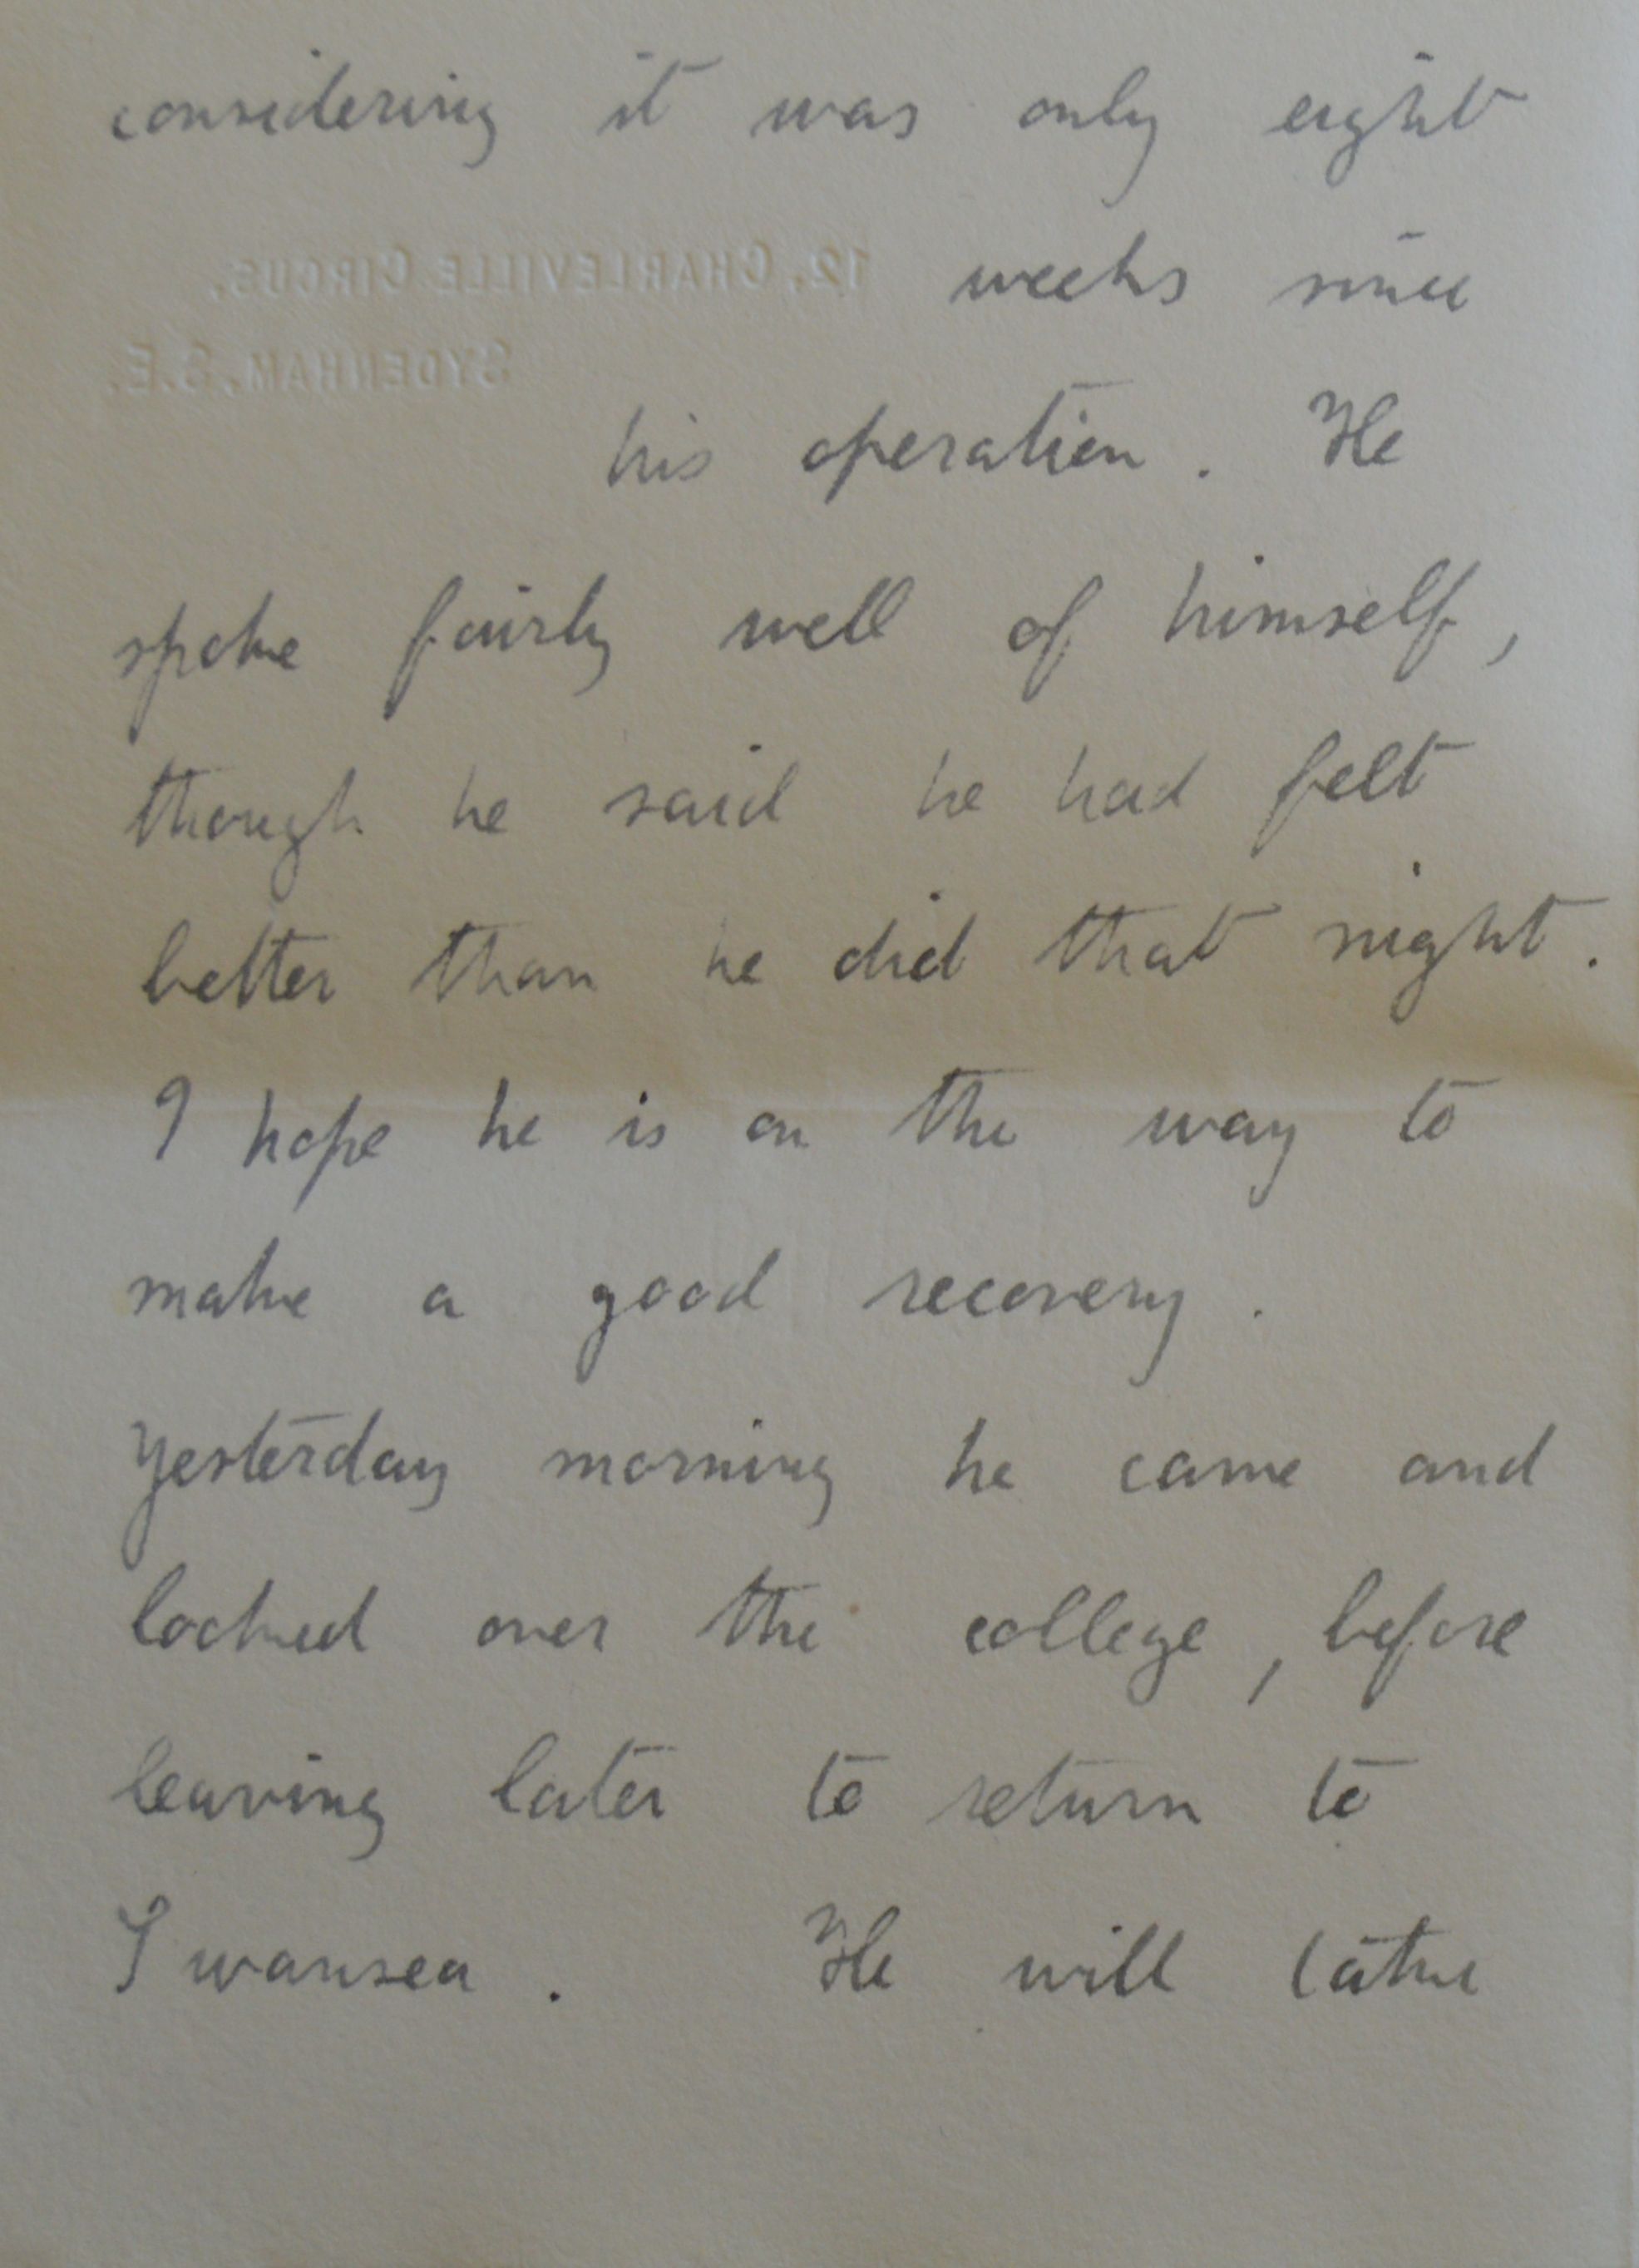 considering it was only eight
12, CHARLEVILLE CIRCUS,
weeks since
SYDENHAM, S.E.
his operation. He
spoke fairly well of himself,
though he said he had felt
better than he did that night.
I hope he is on the way to
make a good recovery.
Yesterday morning he came and
looked over the college, before
leaving later to return to
Swansea. He will